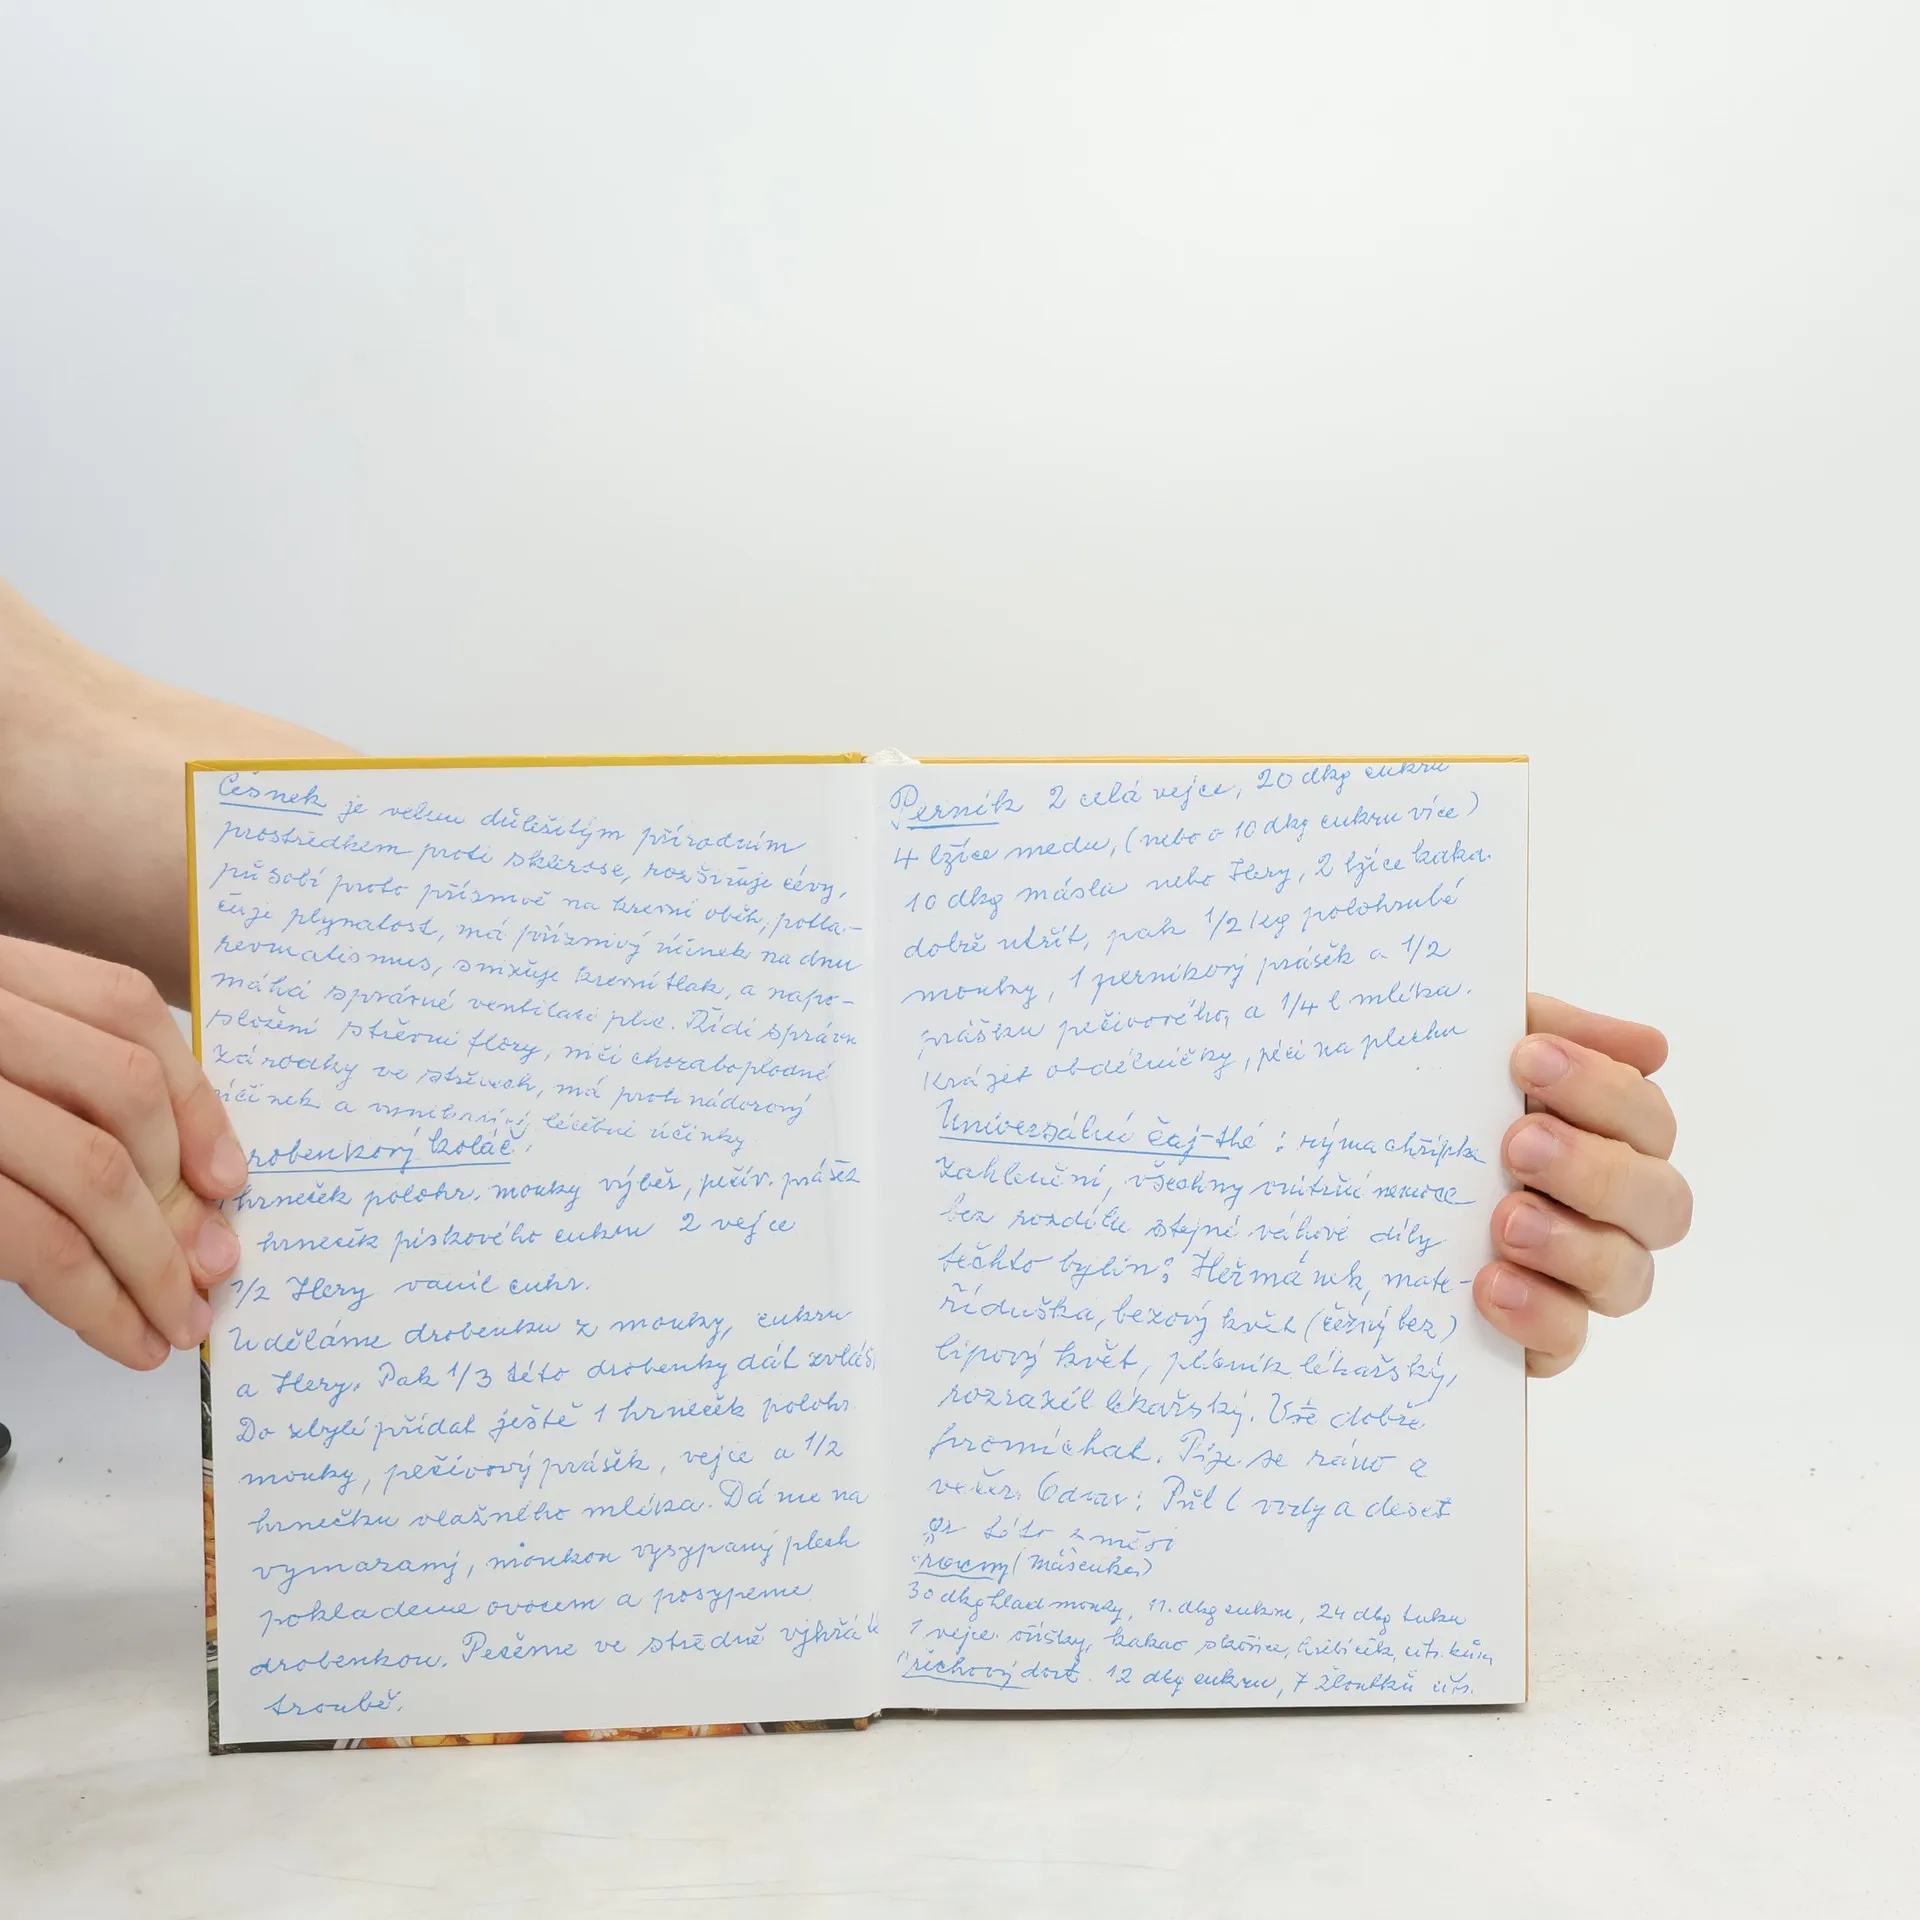 Česnek je velmi důležitým přírodním
prostředkem proti sklerose, rozšiřuje cévy,
působí proto příznivě na krevní oběh, potla-
čuje plynatost, má příznivý účinek na dnu
revmatismus, snižuje krevní tlak, a napo-
máhá správné ventilaci plic. Řídí správn
složení střevní flory, ničí choroboplodné
zárodky ve střevech, má protinádorový
účinek a léčební účinky
robenkový koláč
hrneček polohr. mouky výběr, pečív. prášek
hrneček pískového cukru 2 vejce
1/2 Hery vanil cukr.
Uděláme drobenku z mouky, cukru
a Hery. Pak 1/3 této drobenky dát zvláš
Do zbylé přidat ještě 1 hrneček polohr.
mouky, pečivový prášek, vejce a 1/2
hrnečku vlažného mléka. Dáme na
vymazaný, moukou vysypaný plech
poklademe ovocem a posypeme
drobenkou. Pečeme ve středně vyhřá
troubě.
Perník 2 celá vejce, 20 dkg cukru
4 lžíce medu, (nebo o 10 dkg cukru více)
10 dkg másla nebo Hery, 2 lžíce kaka.
dobře utřít, pak 1/2 kg polohrubé
mouky, 1 perníkový prášek a 1/2
prášku pečivového, a 1/4 l mléka.
Krájet obdélníčky, péci na plechu
Universální čaj-thé: rýma chřipka
Zahlenění, všechny vnitřní nemoce
bez rozdílu stejné váhové díly
těchto bylin: Heřmánek, mate-
řídouška, bezový květ (černý bez)
lipový květ, plicník lékařský,
rozrazil lékařský. Vše dobře
promíchat. Pije se ráno a
večer. Odvar: Půl l vody a deset
gr této směsi
(Mášenka)
30 dkg hlad mouky, 11. dkg cukru, 24 dkg tuku
1 vejce. oříšky, kakao skořice, hřebíček, cit. kůra
řechový dort. 12 dkg cukru, 7 žloutků